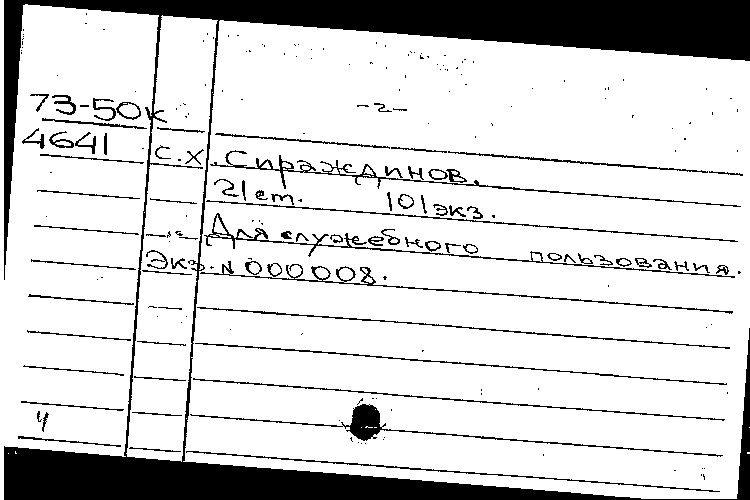 73-50к -2-
4641 С.Х. Сираждинов.
21 ст. 101 экз.
Для служебного пользования.
Экз. N 000008.
4